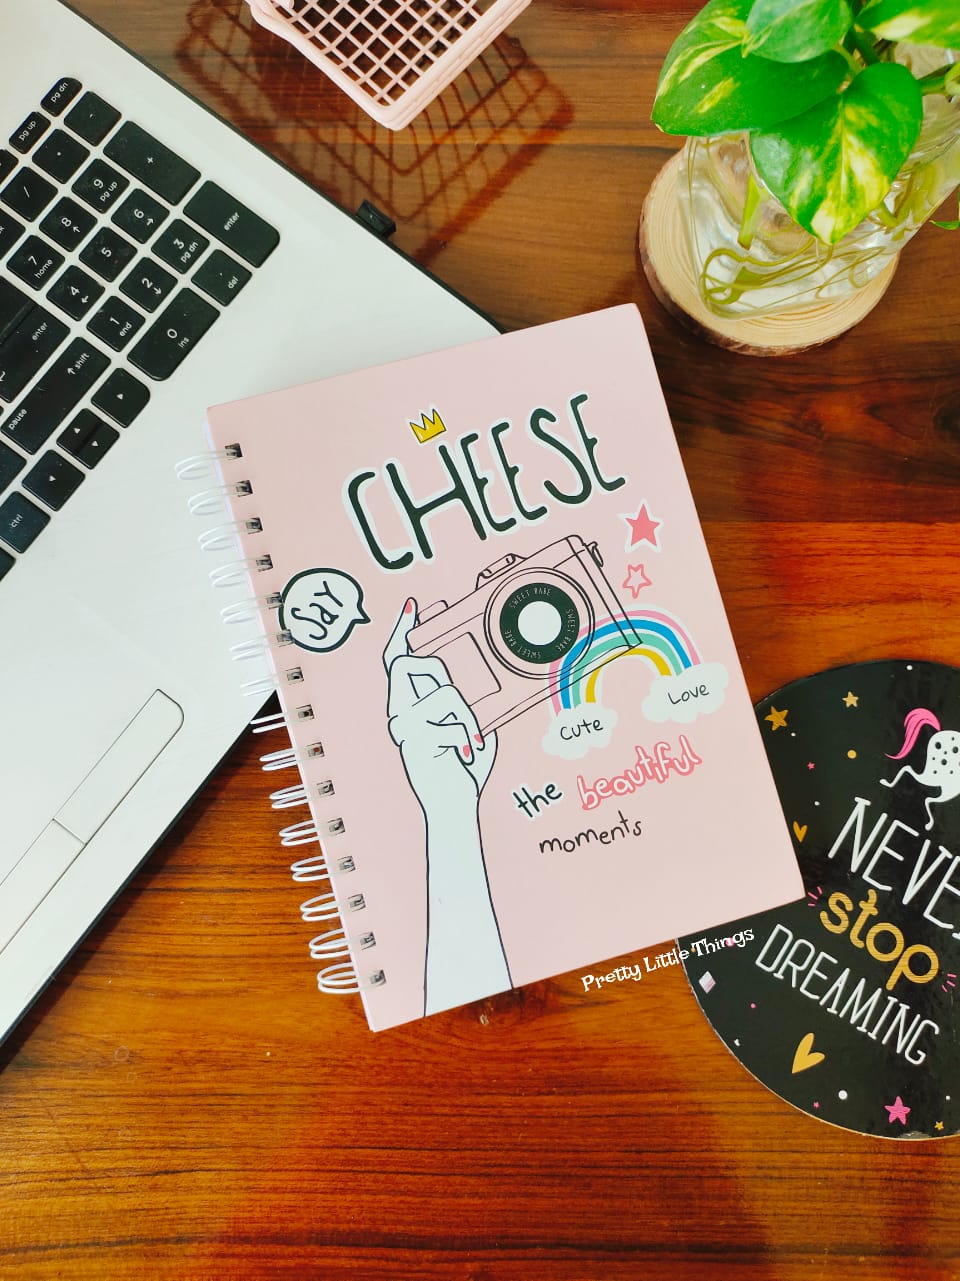 pg dn
pg up
-
*
+
/
9
pg up
8
6
enter
7
home
5
3
pg dn
4
2
del
1
end
0
ins
enter
shift
pause
ctrl
CHEESE
Say
SWEET BABE
SWEET BABE
SWEET BABE
Cute
Love
the beautiful
moments
Pretty Little Things
stop
DREAMING